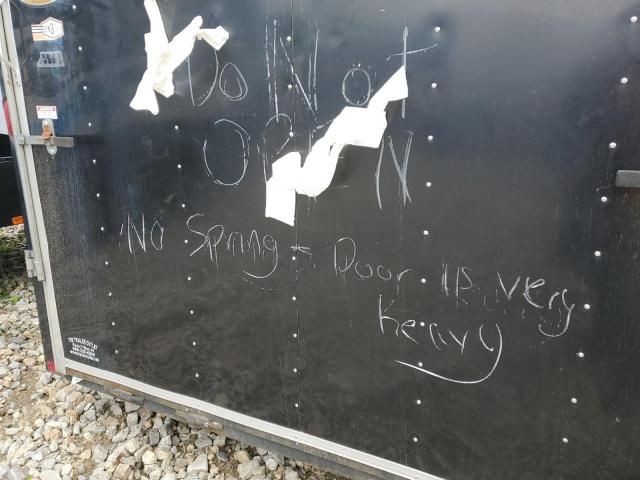 Do Not
OPEN
No Spring - Door is very
heavy
THE TRAILER OUTLET